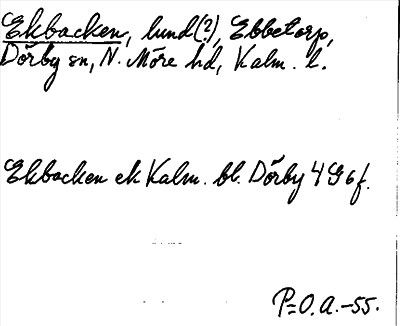 Ekbacken, lund(?), Ebbetorp,
Dörby sn, N. Möre hd, Kalm. l.
Ekbacken ek Kalm. bl. Dörby 4 G 6 f.
P=O.A.-55.